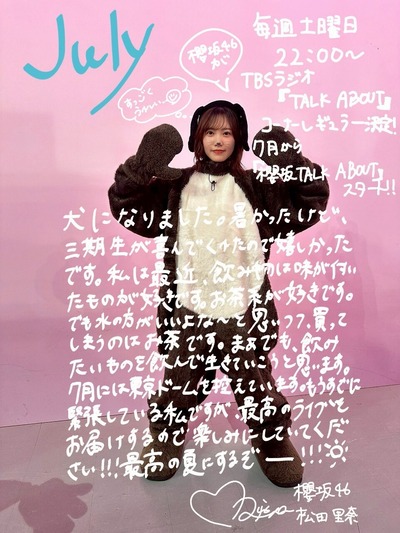 July
櫻坂46が
すっごく
うれしい…
毎週土曜日
22:00〜
TBSラジオ
『TALK ABOUT』
コーナーレギュラー決定!
7月から
『櫻坂 TALK ABOUT』
スタート!!
犬になりました。暑かったけど、
三期生が喜んでくれたので嬉しかった
です。私は最近、飲み物は味が付い
たものが好きです。お茶系が好きです。
でも水の方がいいよな〜と思いつつ、買って
しまうのはお茶です。まぁでも、飲み
たいものを飲んで生きていこうと思います。
7月には東京ドームを控えています。もうすでに
緊張している私ですが、最高のライブを
お届けするので楽しみにしていてくだ
さい!!!最高の夏にするぞー!!!
櫻坂46
松田里奈